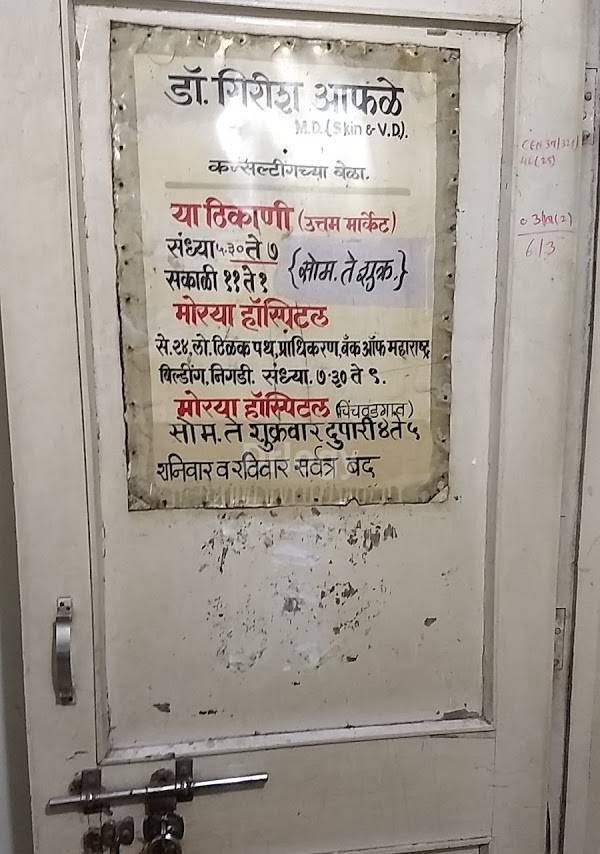 डॉ. गिरीश आफळे
M.D. (Skin & V.D).
कन्सल्टींगच्या वेळा.
या ठिकाणी (उत्तम मार्केट)
संध्या ५.३० ते ७
सकाळी ११ ते १
{सोम. ते शुक्र.}
मोरया हॉस्पिटल
से.२४, लो. टिळक पथ, प्राधिकरण, बँक ऑफ महाराष्ट्र
बिल्डींग, निगडी. संध्या. ७.३० ते ९.
मोरया हॉस्पिटल (चिंचवडगाव)
सोम. ते शुक्रवार दुपारी ४ ते ५
शनिवार व रविवार सर्वत्र बंद
6/3